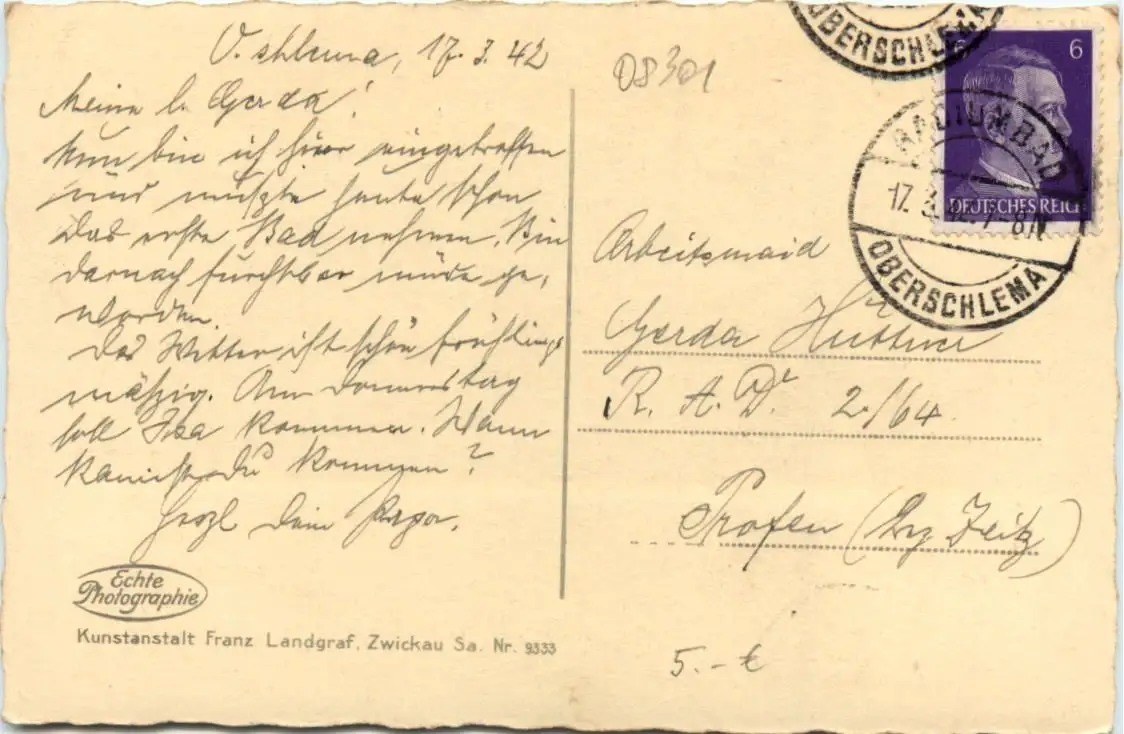 O. Schlema, 17. 3. 42
Meine l. Gerda!
Nun bin ich hier eingetroffen
und mußte heute schon
das erste Bad nehmen. Bin
darnach furchtbar müde ge-
worden.
Das Wetter ist schön frühlings
mäßig. Am Donnerstag
soll Isa kommen. Wann
kannst du kommen?
Herzl Dein Papa.
Echte
Photographie
Kunstanstalt Franz Landgraf, Zwickau Sa. Nr. 9333
08301
OBERSCHLEMA
6
6
DEUTSCHES REICH
RADIUMBAD
17. 3. 7-8N
OBERSCHLEMA
Arbeitsmaid
Gerda Hüttner
R. A. D. 2./64
Profen (Krg Zeitz)
5.-€